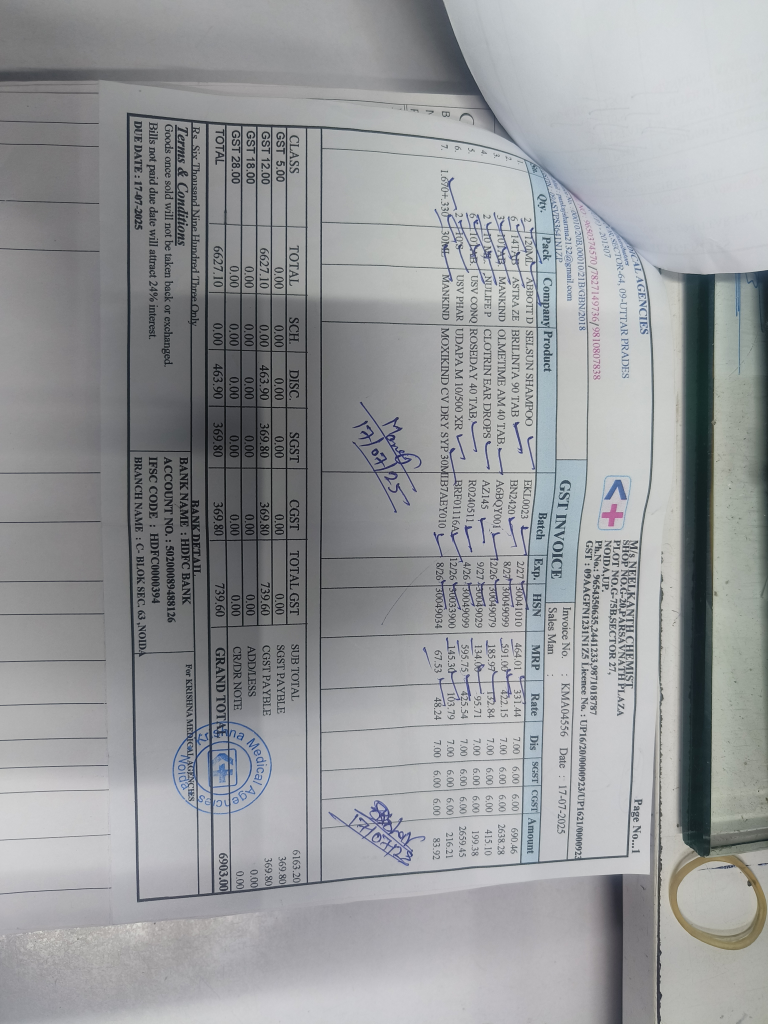 Page No...1
ICAL AGENCIES
SECTOR-64, 09-UTTAR PRADES
201307
9650374570/7827149736/9810807838
20B,00010/21B/GBN/2018
pharma2132@gmail.com
M/s NEELKANTH CHEMIST
SHOP NO.G-20,PARSAVNATH PLAZA
PLOT NO,G-75B,SECTOR 27,
NOIDA,UP,
Ph.No.: 9654350635,2441233,9871018787
GST : 09AAGFN1231N1Z5 Licence No. : UP16/20/0000923/UP1621/0000923
GST INVOICE
Invoice No. : KMA04556 Date : 17-07-2025
Sales Man :
Qty. Pack Company Product Batch Exp. HSN MRP Rate Dis SGST CGST Amount
2 120ML ABBOTT D SELSUN SHAMPOO EKL0023 2/27 30041010 464.01 331.44 7.00 6.00 6.00 690.46
2. 6 14TAB ASTRA ZE BRILINTA 90 TAB BN2420 8/27 30049099 591.00 422.15 7.00 6.00 6.00 2638.28
3. 3 MANKIND OLMETIME AM 40 TAB A6BQY001 12/26 30049079 185.97 132.84 7.00 6.00 6.00 415.10
4. 2 10 NULIFE P CLOTRIN EAR DROPS AZ145 9/27 30049029 134.00 95.71 7.00 6.00 6.00 199.38
5. 6 10 USV CONQ ROSEDAY 40 TAB R0240511 4/26 30049099 595.75 425.54 7.00 6.00 6.00 2659.45
6. 2 10 USV PHAR UDAPA M 10/500 XR BRF01116A 12/26 30033900 145.30 103.79 7.00 6.00 6.00 216.21
7. 1.670+.330 30ML MANKIND MOXIKIND CV DRY SYP 30ML B7AEY010 8/26 30049034 67.53 48.24 7.00 6.00 6.00 83.92
17/07/25
17/07/25
CLASS TOTAL SCH. DISC. SGST CGST TOTAL GST
GST 5.00 0.00 0.00 0.00 0.00 0.00 0.00
GST 12.00 6627.10 0.00 463.90 369.80 369.80 739.60
GST 18.00 0.00 0.00 0.00 0.00 0.00 0.00
GST 28.00 0.00 0.00 0.00 0.00 0.00 0.00
TOTAL 6627.10 0.00 463.90 369.80 369.80 739.60
SUB TOTAL 6163.20
SGST PAYBLE 369.80
CGST PAYBLE 369.80
ADD/LESS 0.00
CR/DR NOTE 0.00
GRAND TOTAL 6903.00
Rs. Six Thousand Nine Hundred Three Only
Terms & Conditions
Goods once sold will not be taken back or exchanged.
Bills not paid due date will attract 24% interest.
DUE DATE : 17-07-2025
BANK DETAIL
BANK NAME : HDFC BANK
ACCOUNT NO. : 50200089488126
IFSC CODE : HDFC0000394
BRANCH NAME : C- BLOK SEC. 63 ,NOIDA
For KRISHNA MEDICAL AGENCIES
Krishna Medical Agencies
Noida